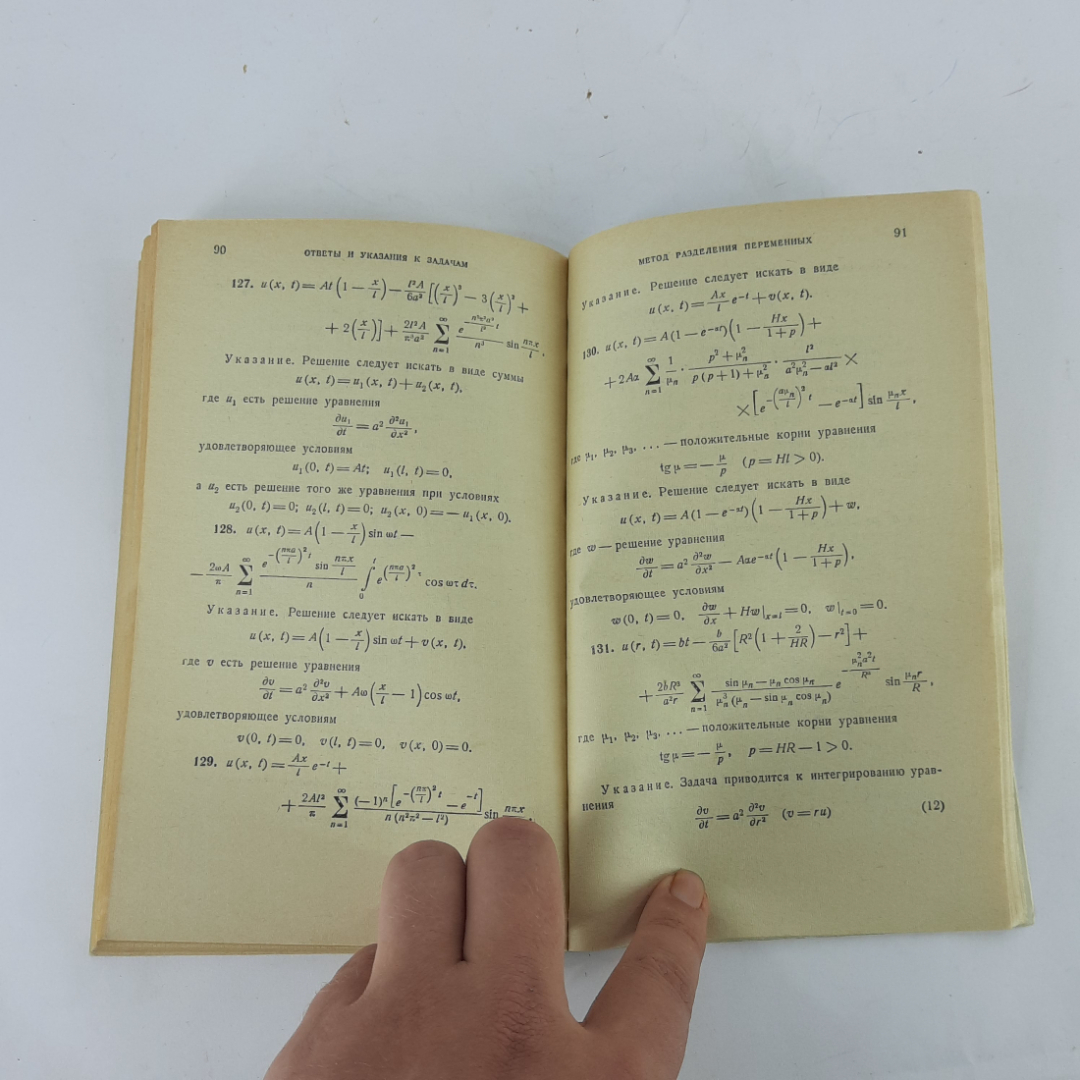 90 ОТВЕТЫ И УКАЗАНИЯ К ЗАДАЧАМ
127. u(x, t) = At(1 − x/l) − l²A/6a² [(x/l)³ − 3(x/l)² +
+ 2(x/l)] + 2l²A/π³a² ∑_{n=1}^{∞} e^{−n²π²a²/l² t}/n³ sin nπx/l.
Указание. Решение следует искать в виде суммы
u(x, t) = u₁(x, t) + u₂(x, t),
где u₁ есть решение уравнения
∂u₁/∂t = a² ∂²u₁/∂x²,
удовлетворяющее условиям
u₁(0, t) = At; u₁(l, t) = 0,
а u₂ есть решение того же уравнения при условиях
u₂(0, t) = 0; u₂(l, t) = 0; u₂(x, 0) = − u₁(x, 0).
128. u(x, t) = A(1 − x/l) sin ωt −
− 2ωA/π ∑_{n=1}^{∞} e^{−(nπa/l)² t} sin nπx/l / n ∫₀^t e^{(nπa/l)² τ} cos ωτ dτ.
Указание. Решение следует искать в виде
u(x, t) = A(1 − x/l) sin ωt + v(x, t),
где v есть решение уравнения
∂v/∂t = a² ∂²v/∂x² + Aω(x/l − 1) cos ωt,
удовлетворяющее условиям
v(0, t) = 0, v(l, t) = 0, v(x, 0) = 0.
129. u(x, t) = Ax/l e^{−t} +
+ 2Al²/π ∑_{n=1}^{∞} (−1)ⁿ [e^{−(nπ/l)² t} − e^{−t}] / n(n²π² − l²) sin nπx
МЕТОД РАЗДЕЛЕНИЯ ПЕРЕМЕННЫХ 91
Указание. Решение следует искать в виде
u(x, t) = Ax/l e^{−t} + v(x, t).
130. u(x, t) = A(1 − e^{−αt})(1 − Hx/1+p) +
+ 2Aα ∑_{n=1}^{∞} 1/μₙ · p² + μₙ²/p(p+1) + μₙ² · l²/a²μₙ² − αl² ×
× [e^{−(aμₙ/l)² t} − e^{−αt}] sin μₙx/l,
где μ₁, μ₂, μ₃, ... — положительные корни уравнения
tg μ = − μ/p (p = Hl > 0).
Указание. Решение следует искать в виде
u(x, t) = A(1 − e^{−αt})(1 − Hx/1+p) + w,
где w — решение уравнения
∂w/∂t = a² ∂²w/∂x² − Aαe^{−αt}(1 − Hx/1+p),
удовлетворяющее условиям
w(0, t) = 0, ∂w/∂x + Hw|ₓ₌ₗ = 0, w|ₜ₌₀ = 0.
131. u(r, t) = bt − b/6a² [R²(1 + 2/HR) − r²] +
+ 2bR³/a²r ∑_{n=1}^{∞} sin μₙ − μₙ cos μₙ / μₙ³(μₙ − sin μₙ cos μₙ) e^{−μₙ²a²t/R²} sin μₙr/R,
где μ₁, μ₂, μ₃, ... — положительные корни уравнения
tg μ = − μ/p, p = HR − 1 > 0.
Указание. Задача приводится к интегрированию урав-
нения
∂v/∂t = a² ∂²v/∂r² (v = ru) (12)